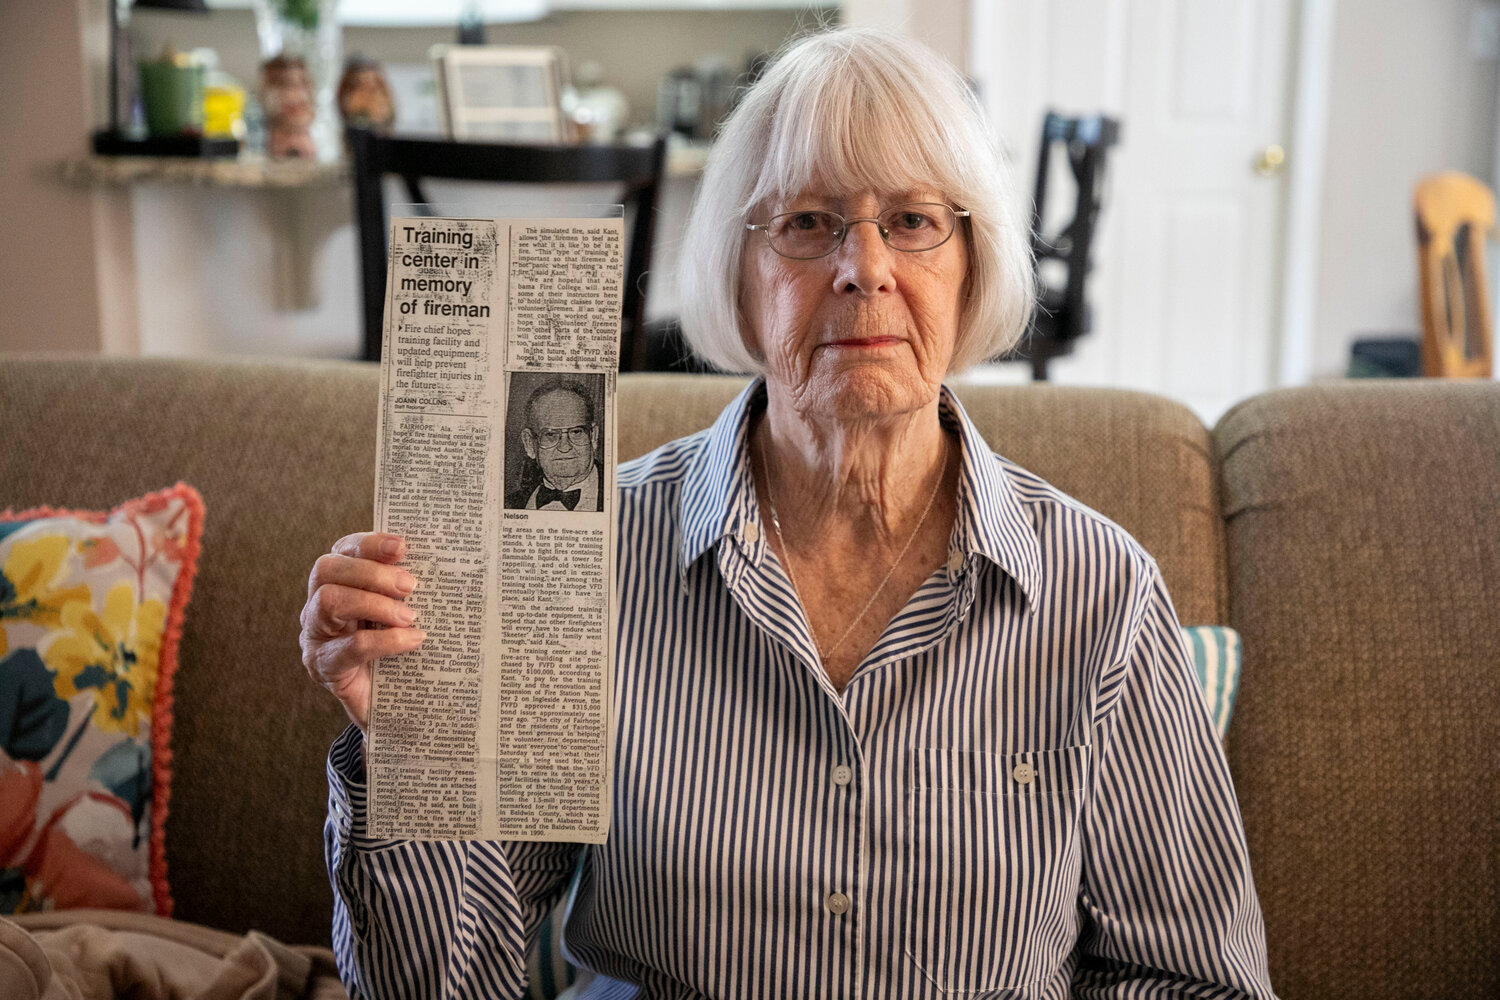 Training
center in
memory
of fireman
Fire chief hopes
training facility and
updated equipment
will help prevent
firefighter injuries in
the future
JOANN COLLINS
Staff Reporter
FAIRHOPE, Ala. — Fair-
hope's fire training center will
be dedicated Saturday as a me-
morial to Alfred Austin "Skee-
ter" Nelson, who was badly
burned while fighting a fire in
1954, according to Fire Chief
Tim Kant.
"The training center will
stand as a memorial to Skeeter
and all other firemen who have
sacrificed so much for their
community in giving their time
and services to make this a
better place for all of us to
live," said Kant. "With this fa-
firemen will have better
than was available
Skeeter joined the de-
ment.
ding to Kant, Nelson
hope Volunteer Fire
t in January, 1952,
severely burned while
a fire two years later.
retired from the FVFD
1955. Nelson, who
t. 17, 1991, was mar-
late Addie Lee Hall
elsons had seven
my Nelson, Her-
Eddie Nelson, Paul
Mrs. William (Janet)
Loyed, Mrs. Richard (Dorothy)
Bowen, and Mrs. Robert (Ro-
chelle) McKee.
Fairhope Mayor James P. Nix
will be making brief remarks
during the dedication ceremo-
nies scheduled at 11 a.m., and
the fire training center will be
open to the public for tours
from 10 a.m. to 3 p.m. In addi-
tion, a number of fire training
exercises will be demonstrated
and hot dogs and cokes will be
served. The fire training center
is located on Thompson Hall
Road.
The training facility resem-
bles a small, two-story resi-
dence and includes an attached
garage which serves as a burn
room, according to Kant. Con-
trolled fires, he said, are built
in the burn room, water is
poured on the fire and the
steam and smoke are allowed
to travel into the training facil-
The simulated fire, said Kant,
allows the firemen to feel and
see what it is like to be in a
fire. "This type of training is
important so that firemen do
not panic when fighting a real
fire," said Kant.
"We are hopeful that Ala-
bama Fire College will send
some of their instructors here
to hold training classes for our
volunteer firemen. If an agree-
ment can be worked out, we
hope that volunteer firemen
from other parts of the county
will come here for training
too," said Kant.
In the future, the FVFD also
hopes to build additional train-
Nelson
ing areas on the five-acre site
where the fire training center
stands. A burn pit for training
on how to fight fires containing
flammable liquids, a tower for
rappelling, and old vehicles,
which will be used in extrac-
tion training, are among the
training tools the Fairhope VFD
eventually hopes to have in
place, said Kant.
"With the advanced training
and up-to-date equipment, it is
hoped that no other firefighters
will every have to endure what
'Skeeter' and his family went
through," said Kant.
The training center and the
five-acre building site pur-
chased by FVFD cost approxi-
mately $100,000, according to
Kant. To pay for the training
facility and the renovation and
expansion of Fire Station Num-
ber 2 on Ingleside Avenue, the
FVFD approved a $315,000
bond issue approximately one
year ago. "The city of Fairhope
and the residents of Fairhope
have been generous in helping
the volunteer fire department.
We want everyone to come out
Saturday and see what their
money is being used for," said
Kant, who noted that the VFD
hopes to retire its debt on the
new facilities within 20 years. A
portion of the funding for the
building projects will be coming
from the 1.5-mill property tax
earmarked for fire departments
in Baldwin County, which was
approved by the Alabama Leg-
islature and the Baldwin County
voters in 1990.